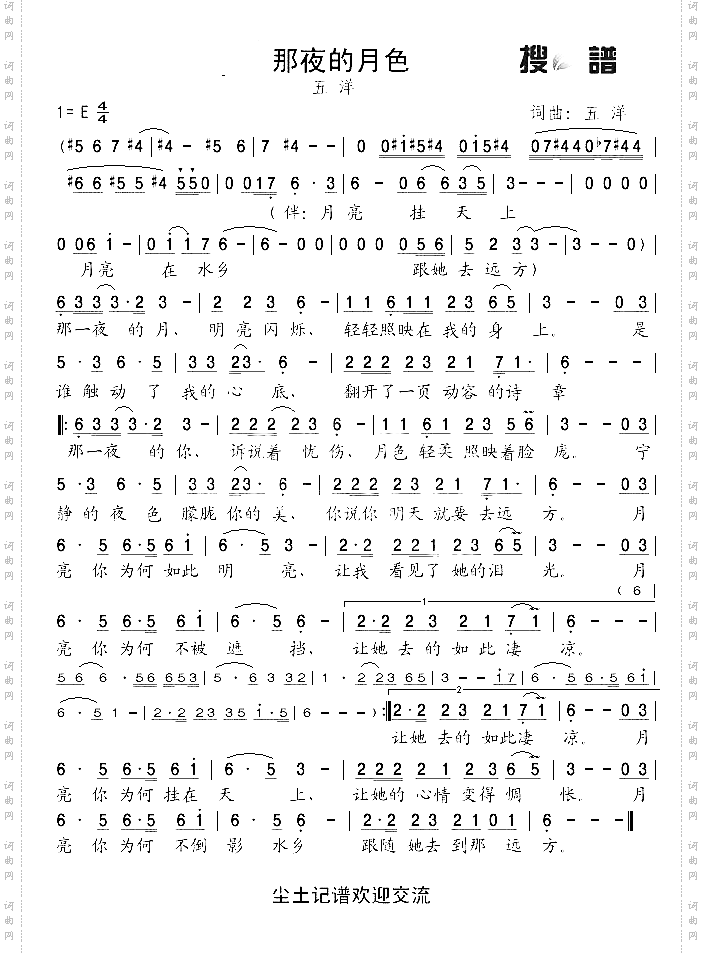 那夜的月色
搜 谱
五 洋
1= E 4/4
词曲: 五 洋
(♯5 6 7 ♯4 | ♯4 - ♯5 6 | 7 ♯4 - - | 0 0♯1♯5♯4 015♯4 07♯440♭7♯44 |
♯66 ♯55 ♯4 550 | 0 017 6 · 3 | 6 - 06 635 | 3 - - - | 0 0 0 0 |
(伴: 月 亮 挂 天 上
0 06 1 - | 0 1 1 76 - | 6 - 0 0 | 0 0 0 056 | 5 2 3 3 - | 3 - - 0) |
月亮 在 水乡 跟她 去 远 方)
6333 3·2 3 - | 2 2 23 6 - | 11 611 23 65 | 3 - - 03 |
那一夜 的 月、 明 亮 闪 烁、 轻轻照映在 我的 身 上。 是
5 · 3 6 · 5 | 33 23· 6 - | 222 223 21 71· | 6 - - - |
谁 触 动 了 我的 心 底、 翻开了一页 动容 的诗 章
‖: 6333 3·2 3 - | 222 23 6 - | 11 61 223 65 | 3 - - 03 |
那一夜 的 你、 诉说着 忧 伤、 月色 轻柔 照映着脸 庞。 宁
5 · 3 6 · 5 | 33 23· 6 - | 222 223 21 71· | 6 - - 03 |
静 的 夜 色 朦胧 你的 美、 你说你 明天 就要 去远 方。 月
6 · 5 6·5 61 | 6 · 5 3 - | 2·2 22123 65 | 3 - - 03 |
亮 你 为何 如此 明 亮、 让我 看见了 她的泪 光。 月
( 6 |
6 · 5 6·5 61 | 6 · 5 6 - | 2·2 23 21 71 | 6 - - - |
1
亮 你 为何 不被 遮 挡、 让她 去 的 如 此凄 凉。
56 6 · 56 653 | 5 · 63 32 | 1 · 2 23 65 | 3 - - 17 | 6 · 5 6·5 61 |
6 · 5 1 - | 2·2 23 35 1·5 | 6 - - - ) :‖ 2·2 23 21 71 | 6 - - 03 |
2
让她 去的 如此凄 凉。 月
6 · 5 6·5 61 | 6 · 5 3 - | 2·2 21 223 65 | 3 - - 03 |
亮 你 为何 挂在 天 上、 让她的 心情 变得 惆 怅。 月
6 · 5 6·5 65 | 6 · 5 6 - | 2·2 23 2101 | 6 - - - ‖
亮 你 为何 不倒 影 水乡 跟随 她去 到那 远 方。
尘土记谱欢迎交流
词曲网